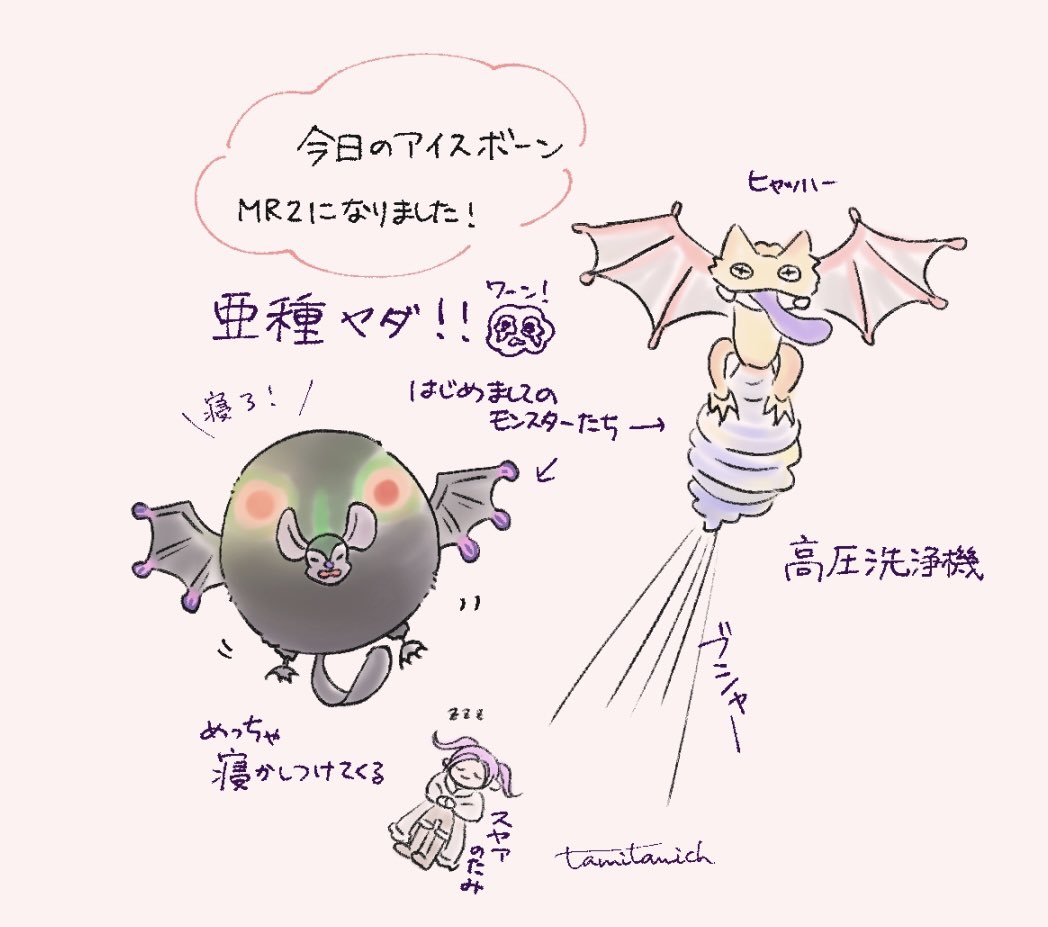 今日のアイスボーン
MR2になりました!
ヒャッハー
亜種ヤダ!!
ワーン!
はじめましての
モンスターたち→
寝ろ!
高圧洗浄機
ブシャー
めっちゃ
寝かしつけてくる
zzz
スヤァ
のたみ
tamitamich